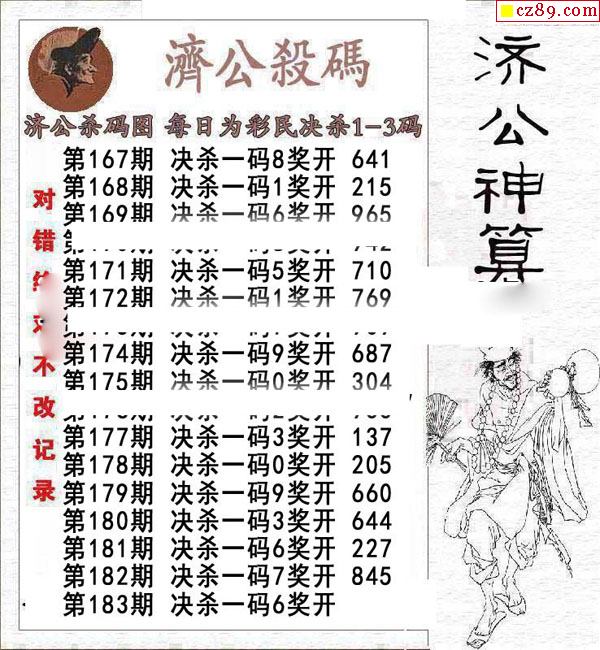 cz89.com
濟公殺碼
济公杀码图 每日为彩民决杀1-3码
第167期 决杀一码8奖开 641
第168期 决杀一码1奖开 215
第169期 决杀一码6奖开 965
第171期 决杀一码5奖开 710
第172期 决杀一码1奖开 769
第174期 决杀一码9奖开 687
第175期 决杀一码0奖开 304
第177期 决杀一码3奖开 137
第178期 决杀一码0奖开 205
第179期 决杀一码9奖开 660
第180期 决杀一码3奖开 644
第181期 决杀一码6奖开 227
第182期 决杀一码7奖开 845
第183期 决杀一码6奖开
对错 不改记录
济公神算